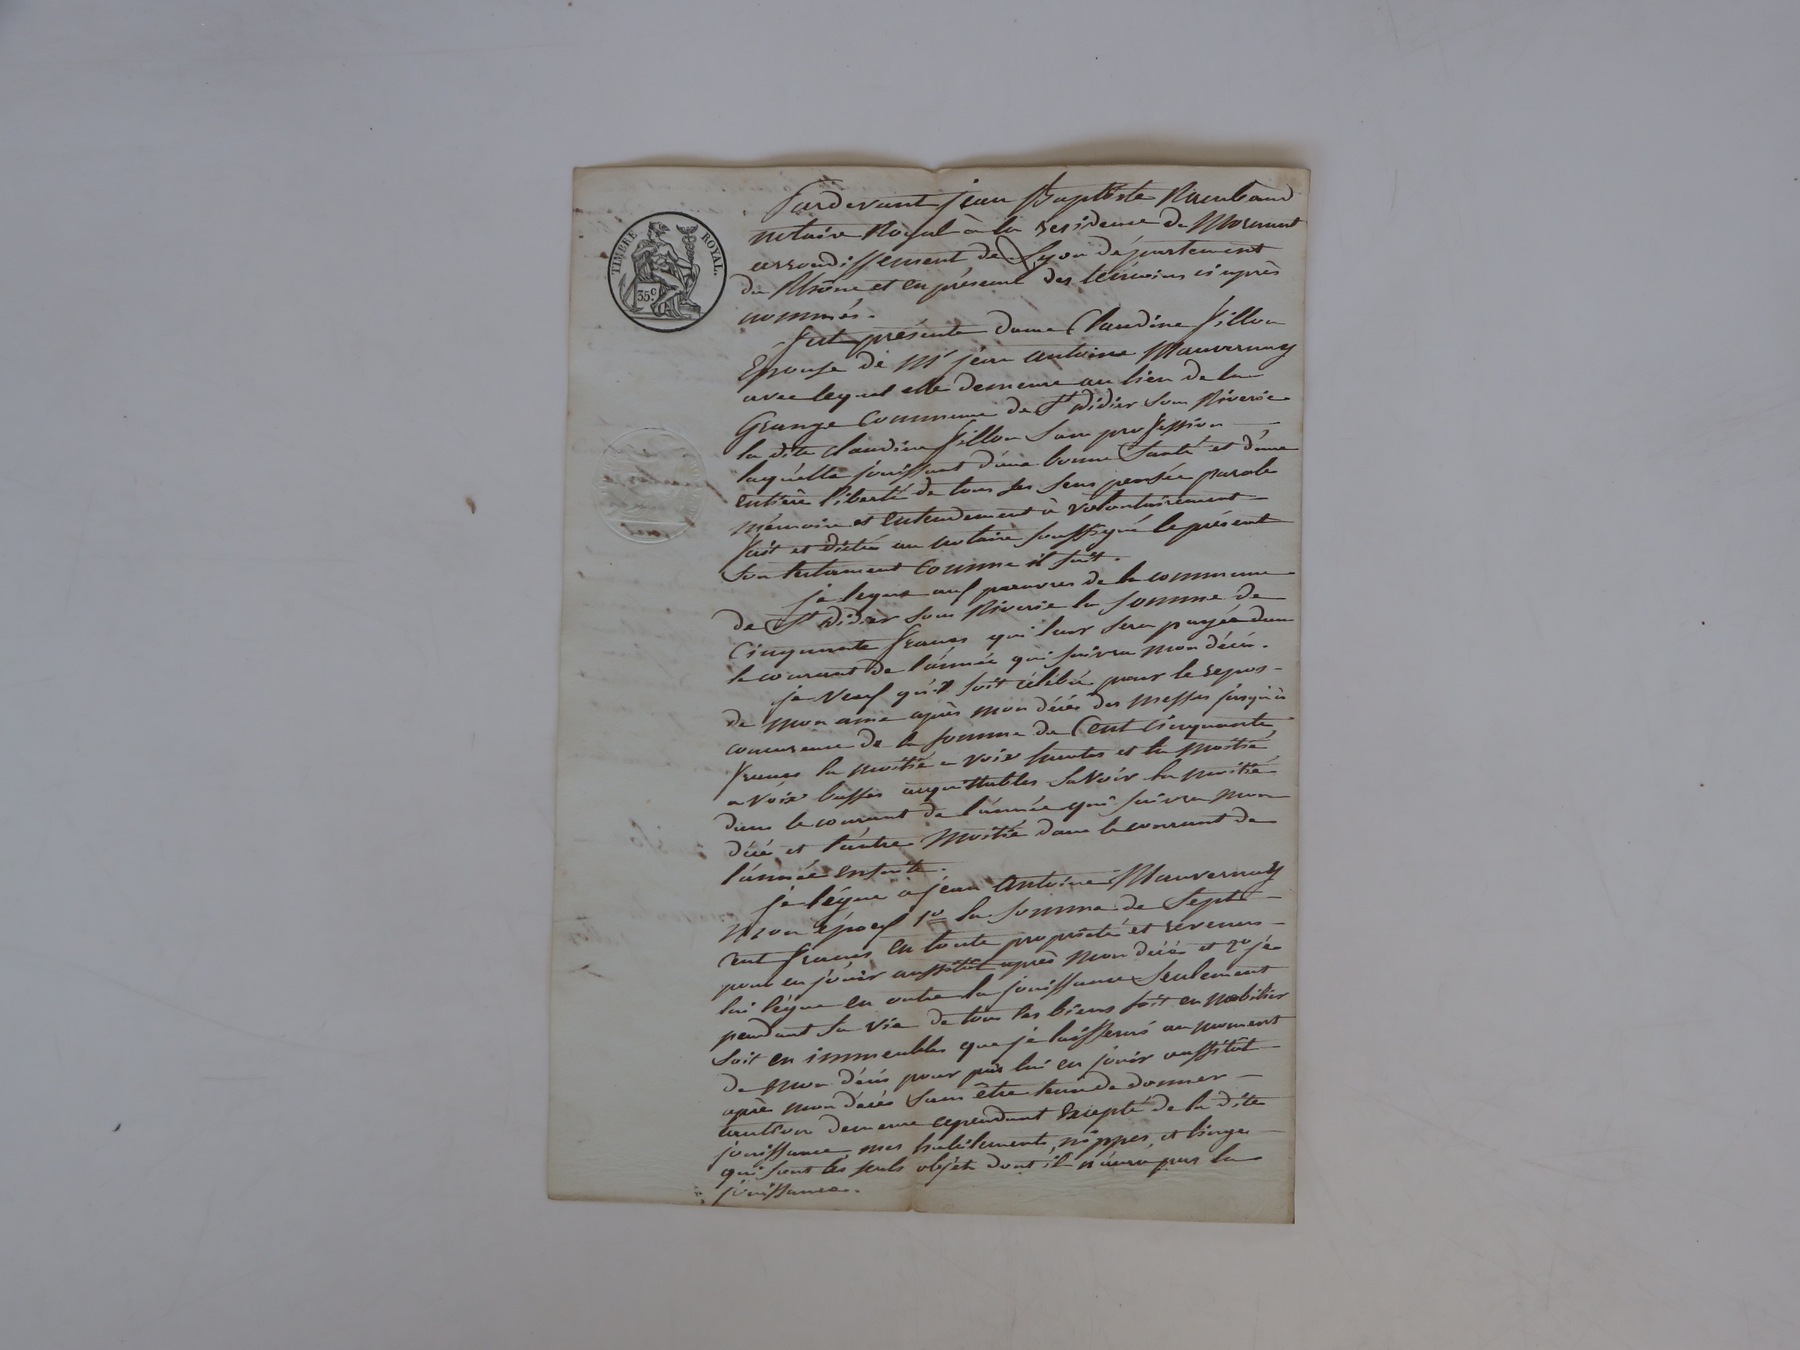 TIMBRE ROYAL.
35 c
Pardevant jean Baptiste Raimbaud
notaire Royal à la residence de Mornant
arrondissement de Lyon département
du Rhône et en présence des témoins ci après
nommés.
Fut présente dame Claudine Fillon
Epouse de Mr jean antoine Mauvernay
avec lequel elle demeure au lieu de la
Grange Commune de St Didier sous Riverie
la dite Claudine Fillon sans profession
laquelle jouissant d'une bonne santé et d'une
entière liberté de tous ses sens pensée parole
mémoire et entendement à volontairement
fait et dicté au notaire soussigné le présent
son testament comme il suit.
je legue aux pauvres de la commune
de St Didier sous Riverie la somme de
Cinquante francs qui leur sera payée dans
le courant de l'année qui suivra mon décès.
je veux qu'il soit célébré pour le repos
de mon ame après mon décès des messes jusqu'à
concurence de la somme de Cent Cinquante
francs la moitié a voix hautes et la moitié
a voix basses acquittables savoir la moitié
dans le courant de l'année qui suivra mon
décé et l'autre moitié dans le courant de
l'année ensuite.
je lègue a jean Antoine Mauvernay
mon époux 1o la somme de Sept
cent francs en toute propriété et revenus
pour en jouir aussitôt après mon décès et 2o je
lui lègue en outre la jouissance seulement
pendant sa vie de tous les biens soit en mobilier
soit en immeubles que je laisserai au moment
de mon décès pour par lui en jouir aussitôt
après mon décès sans être tenu de donner
caution demeure cependant Excepté de la dite
jouissance mes habilements, nippes, et linge
qui sont les seuls objets dont il n'aura pas la
jouissance.